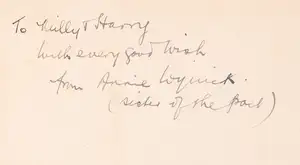 To Milly & Harry
with every good wish
from Annie Wynick.
(sister of the poet)